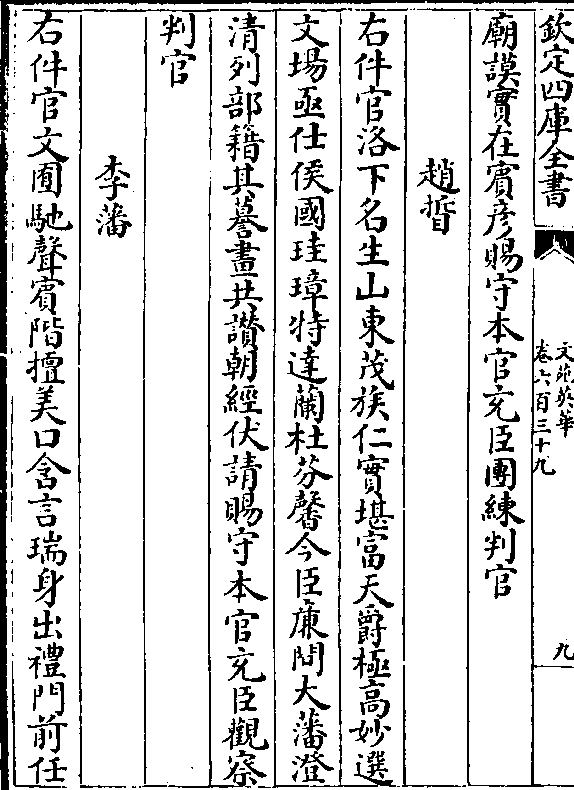 欽定四庫全書
文苑英華
卷六百三十九
九
廟謨實在賓彦賜守本官充臣團練判官
趙晢
右件官洛下名生山東茂族仁實堪富天爵極高妙選
文場亟仕侯國珪璋特達蘭杜芬馨今臣亷問大藩澄
清列部籍其蓍畫共讃朝經伏請賜守本官充臣觀察
判官
李藩
右件官文囿馳聲賓階擅美口含言瑞身出禮門前任